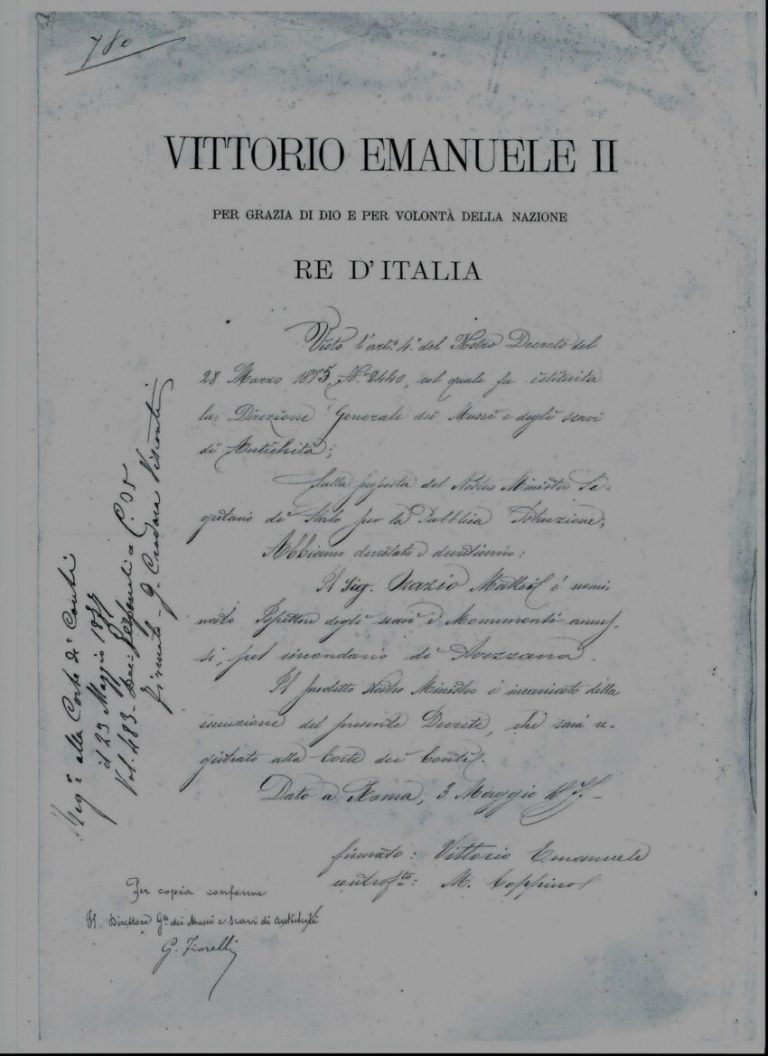 780
VITTORIO EMANUELE II
PER GRAZIA DI DIO E PER VOLONTÀ DELLA NAZIONE
RE D'ITALIA
Visto l'art.º 4.º del Nostro Decreto del
28 Marzo 1875, Nº 2440, col quale fu istituita
la Direzione Generale dei Musei e degli scavi
di Antichità;
Sulla proposta del Nostro Ministro Se-
gretario di Stato per la Pubblica Istruzione;
Abbiamo decretato e decretiamo:
Il Sig. Orazio Mattei è nomi-
nato Ispettore degli scavi e Monumenti
pel circondario di Avezzano.
Il predetto Nostro Ministro è incaricato della
esecuzione del presente Decreto, che sarà re-
gistrato alla Corte dei Conti.
Dato a Roma, 3 Maggio 1877.
firmato: Vittorio Emanuele
controfto: M. Coppino
Regº alla Corte de' Conti
il 23 Maggio 1877
Vol. 483 Dec.
firmato G. Visconti
Per copia conforme
Il Direttore Gle dei Musei e Scavi di antichità
G. Fiorelli